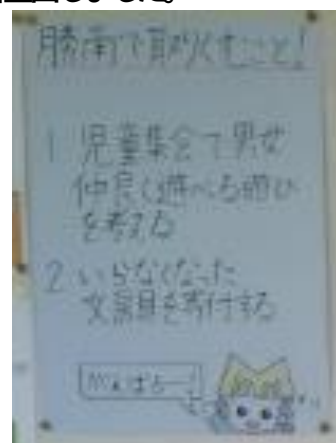 勝南で取りくむこと!
1 児童集会で男女
仲良く遊べる遊び
を考える
2 いらなくなった
文房具を寄付する
がんばろー!